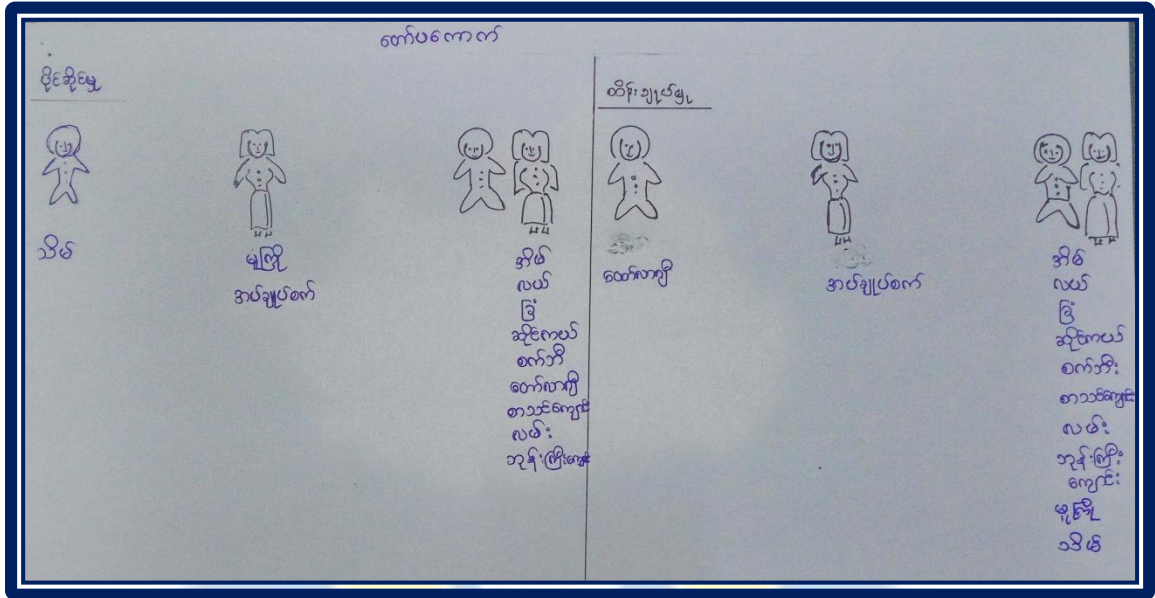 တော်ပကောက်
ပိုင်ဆိုင်မှု
သိမ်
မူကြို
အပ်ချုပ်စက်
အိမ်
လယ်
ခြံ
ဆိုင်ကယ်
စက်ဘီ
တော်လာဂျီ
စာသင်ကျောင်း
လမ်း
ဘုန်းကြီးကျောင်း
ထိန်းချုပ်မှု
ထော်လာဂျီ
အပ်ချုပ်စက်
အိမ်
လယ်
ခြံ
ဆိုင်ကယ်
စက်ဘီး
စာသင်ကျောင်း
လမ်း
ဘုန်းကြီး
ကျောင်း
မူကြို
သိမ်